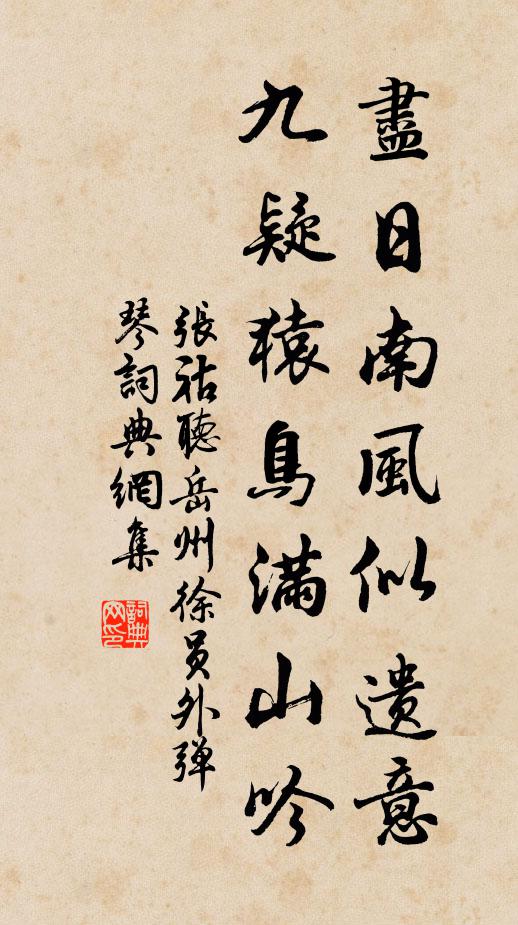 盡日南風似遺意
九疑猿鳥滿山吟
張祜聽岳州徐员外弹
琴詞典網集
詞典网印